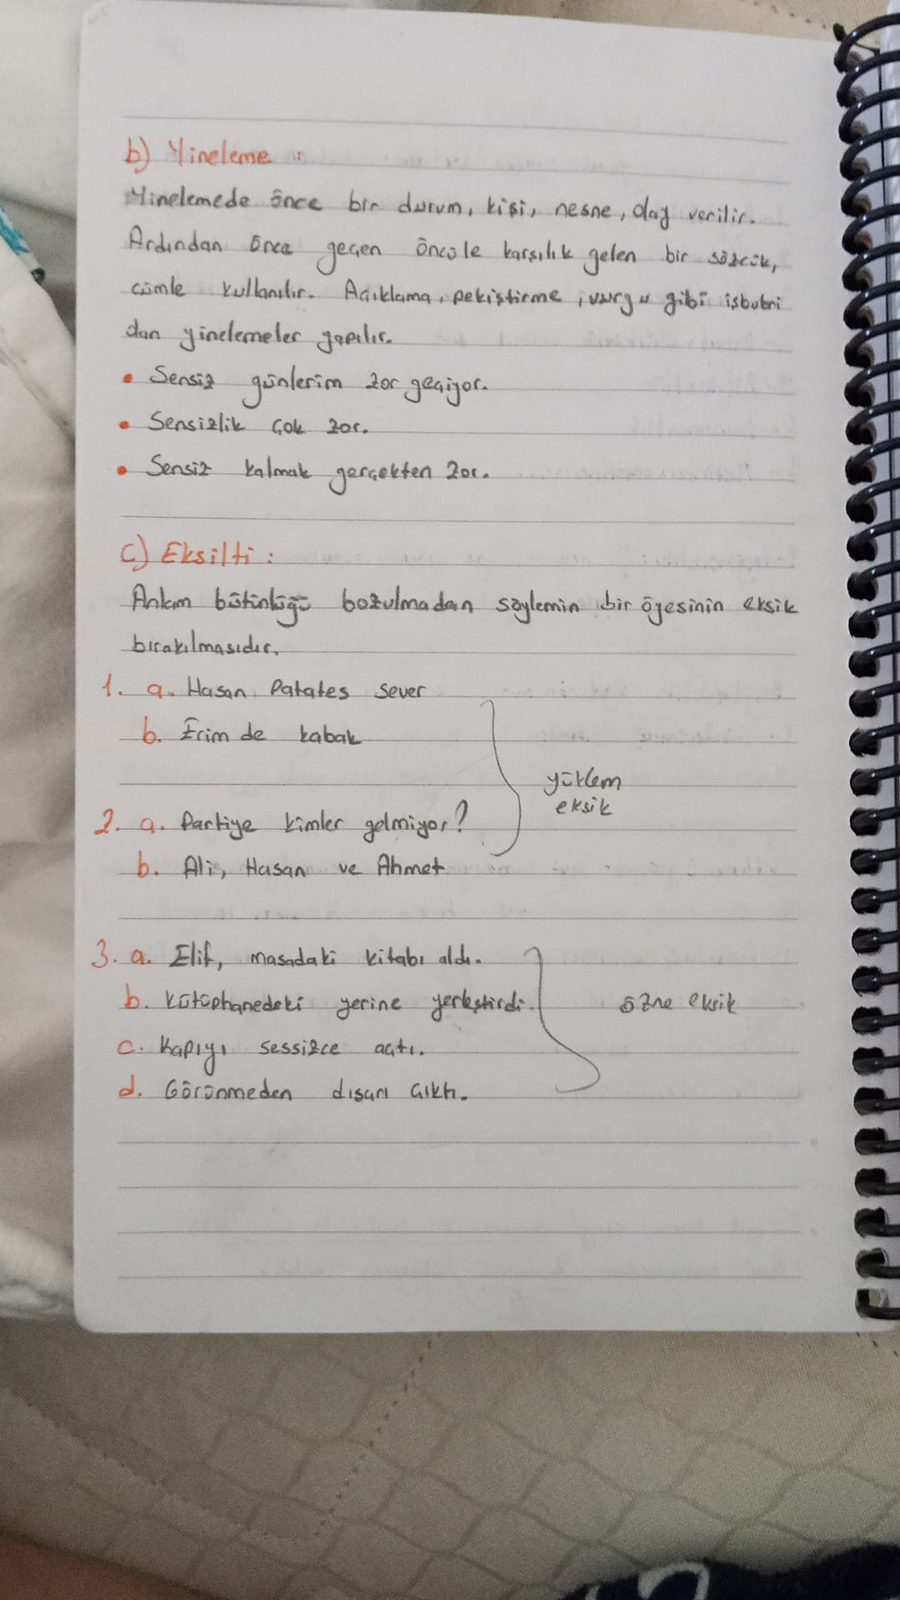 b) Yineleme :
Yinelemede önce bir durum, kişi, nesne, olay verilir.
Ardından önce geçen öncüle karşılık gelen bir sözcük,
cümle kullanılır. Açıklama, pekiştirme, vurgu gibi
dan yinelemeler yapılır.
• Sensiz günlerim zor geçiyor.
• Sensizlik çok zor.
• Sensiz kalmak gerçekten zor.
c) Eksilti :
Anlam bütünlüğü bozulmadan söylemin bir ögesinin eksik
bırakılmasıdır.
1. a. Hasan Patates sever
b. de kabak
yüklem
eksik
2. a. Partiye kimler gelmiyor?
b. Ali, Hasan ve Ahmet
3. a. Elif, masadaki kitabı aldı.
b. Kütüphanedeki yerine yerleştirdi.
özne eksik
c. Kapıyı sessizce açtı.
d. Görünmeden dışarı çıktı.